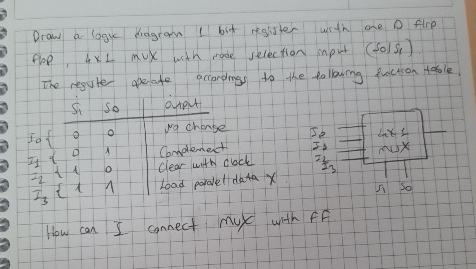 Draw a logic diagram 1 bit register with one D flip
flop, 4x1 mux with mode selection input (S0/S1)
The register operate accordings to the following function table.
S1 S0 output
I0 { 0 0 No change
I1 { 0 1 Complement
I2 { 1 0 Clear with clock
I3 { 1 1 Load paralel data X
I0
I1
I2
I3
4x1
MUX
S1 S0
How can I connect MUX with FF